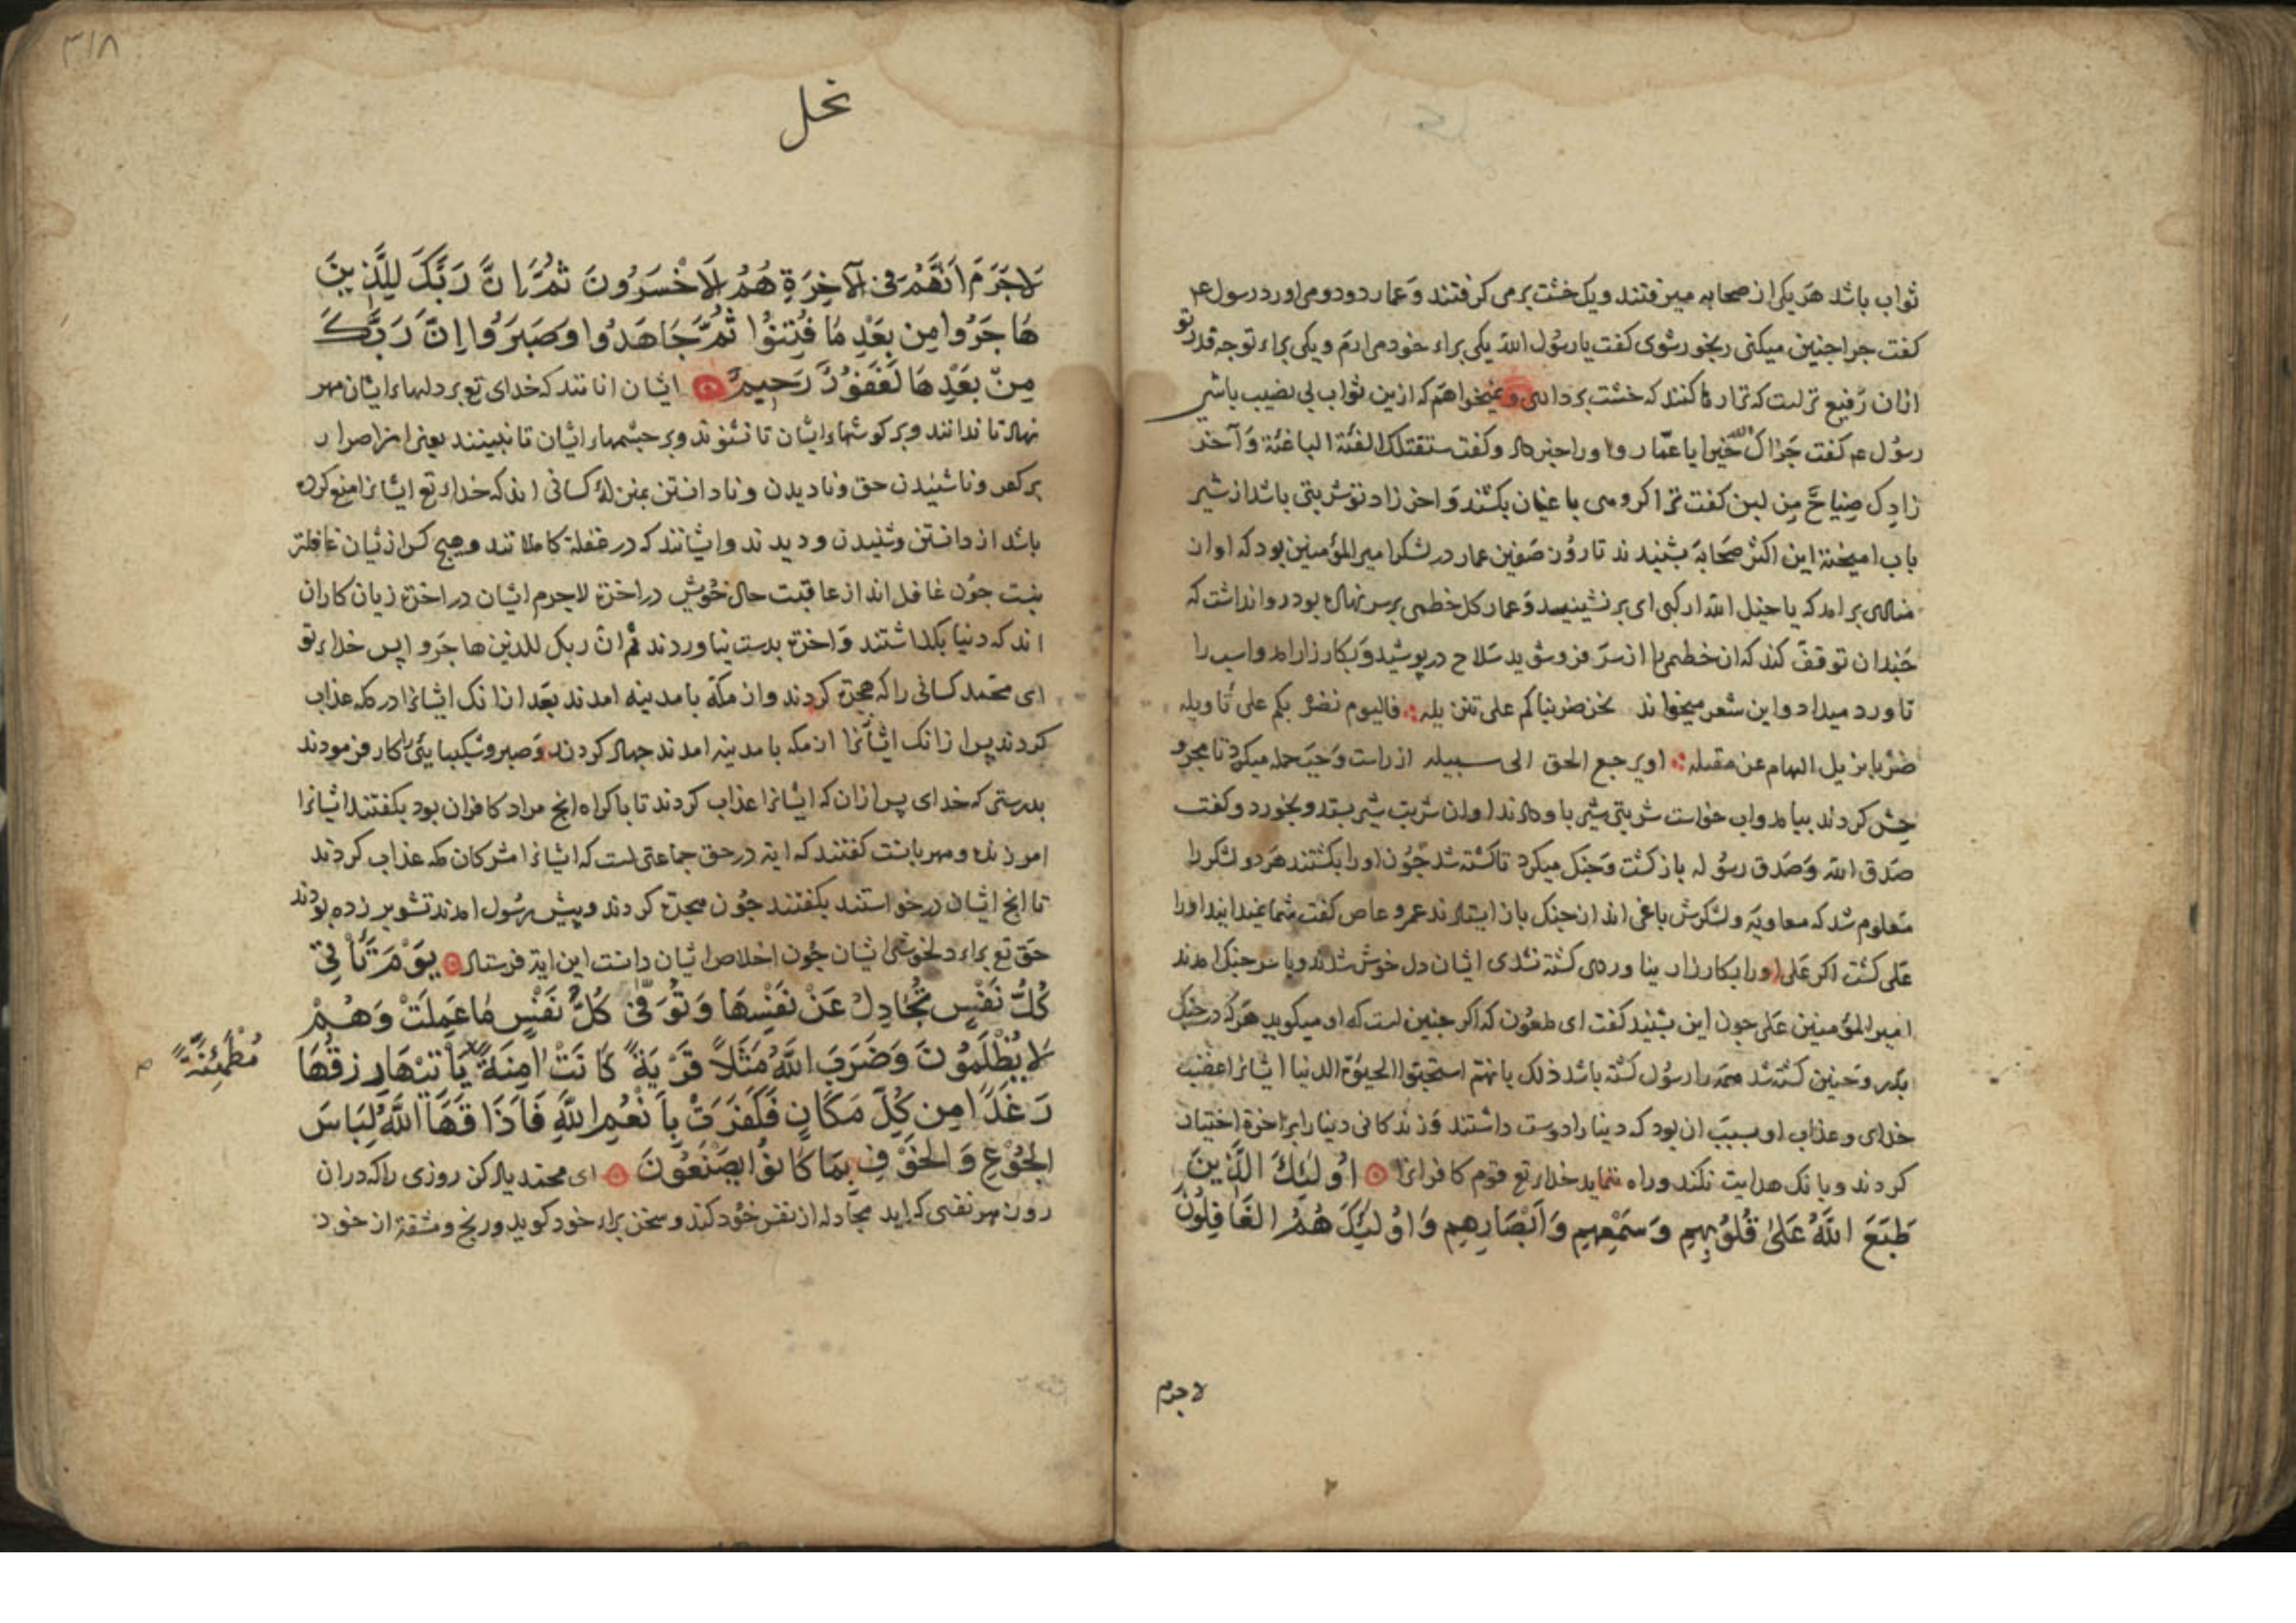 ثواب باشد هر یکی از صحابه میرفتند ویک خشت برمی کرفتند وعمار دو دو می اورد رسول عم
کفت جرا جنین میکنی رنجور شوی کفت یا رسول الله یکی براء خود می ارم و یکی براء تو جه قدر تو
ازان رفیع تر است که ترا رها کنند که خشت برداری و نمیخواهم که ازین ثواب بی نصیب باشی
رسول عم کفت جزاک الله خیرا یا عمار و او را خبر داد وکفت ستقتلک الفئة الباغئة وآخر
زادک ضیاح من لبن کفت ترا کروهی باغیان بکشند واخر زاد تو شربتی باشد از شیر
باب امیخته این اکثر صحابه بشنیدند تا روز صفین عمار در لشکر امیر المؤمنین بود که اواز
منادی برامد که یا خیل الله ارکبی ای برنشینید وعمار کل خطمی برسر نهاده بود روا نداشت که
جندان توقف کند که ان خطمی را از سر فروشوید سلاح در پوشید وبکارزار امد واسب را
تاورد میداد واین شعر میخواند نحن ضربناکم علی تنزیله فالیوم نضربکم علی تاویله
ضربا یزیل الهام عن مقیله او یرجع الحق الی سبیله از راست وجب حمله میکرد تا مجروحش
کردند بیامد واب خواست شربتی شیر باو دادند او ان شربت شیر بستد وبخورد وکفت
صدق الله وصدق رسوله باز کشت وجنک میکرد تا کشته شد جون او را بکشتند هر دو لشکر را
معلوم شد که معاویه ولشکرش باغی اند از جنک باز ایستادند عمرو عاص کفت شما نمیدانید او را
علی کشت اکر علی او را بکارزار نیاوردی کشته نشدی ایشان دل خوش شدند وبا سر جنک امدند
امیر المؤمنین علی جون این بشنید کفت ای ملعون که اکر جنین است که او میکوید هر که در جنک
بدر وحنین کشته شد همه را رسول کشته باشد ذلک بانهم استحبوا الحیوة الدنیا ایشانرا غضب
خدای وعذاب او بسبب ان بود که دنیا را دوست داشتند وزندکانی دنیا را بر اخرة اختیار
کردند وبانک هدایت نکند وراه ننماید خدای تع قوم کافرانرا اُولٰئِكَ الَّذِينَ
طَبَعَ اللَّهُ عَلىٰ قُلُوبِهِم وَسَمْعِهِم وَاَبْصَارِهِم وَاُولٰئِكَ هُمُ الغَافِلُونَ
لا جرم
٣١٨
نحل
لَاجَرَمَ اَنَّهُمْ فِی الآخِرَةِ هُمُ الاَخْسَرُونَ ثُمَّ اِنَّ رَبَّكَ لِلَّذِينَ
هَاجَرُوا مِن بَعْدِ مَا فُتِنُوا ثُمَّ جَاهَدُوا وَصَبَرُوا اِنَّ رَبَّكَ
مِنْ بَعْدِهَا لَغَفُورٌ رَحِيمٌ ایشان انانند که خدای تع بر دلهاء ایشان مهر
نهاد تا ندانند وبر کوشهاء ایشان تا نشنوند وبر جشمهاء ایشان تا نبینند یعنی از اصرار
بر کفر وناشنیدن حق ونادیدن ونادانستن بمنزلۀ کسانی اند که خدای تع ایشانرا منع کرده
باشد از دانستن وشنیدن ودیدند وایشانند که در غفلة کاملانند وهیج کس از ایشان غافلتر
نیست جون غافل اند از عاقبت حال خویش در اخرة لاجرم ایشان در اخرة زیان کاران
اند که دنیا بکذاشتند واخرة بدست نیاوردند ثم ان ربک للذین هاجروا پس خدای تو
ای محمد کسانی را که هجرة کردند واز مکة با مدینه امدند بعد ازانک ایشانرا در مکه عذاب
کردند پس ازانک ایشانرا از مکه با مدینه امدند جهاد کردند وصبر وشکیبایئی را کار فرمودند
بدرستی که خدای پس ازان که ایشانرا عذاب کردند تا باکراه انج مراد کافران بود بکفتند ایشانرا
امرزنده ومهربانست کفتند که ایة در حق جماعتی است که ایشانرا مشرکان مکه عذاب کردند
تا انج ایشان درخواستند بکفتند جون هجرة کردند وپیش رسول امدند تشویر زده بودند
حق تع براء دلخوشی ایشان جون اخلاص ایشان دانست این ایة فرستاد يَوْمَ تَأْتِي
كُلُّ نَفْسٍ تُجَادِلُ عَنْ نَفْسِهَا وَتُوَفّىٰ كُلُّ نَفْسٍ مَاعَمِلَتْ وَهُمْ
لَا يُظْلَمُونَ وَضَرَبَ اللَّهُ مَثَلاً قَرْيَةً كَانَتْ اٰمِنَةً يَأْتِيْهَا رِزقُهَا
مُطْمَئِنَّةً
رَغَدًا مِن كُلِّ مَكَانٍ فَكَفَرَتْ بِاَنْعُمِ اللَّهِ فَاَذَاقَهَا اللَّهُ لِبَاسَ
الجُوْعِ وَالخَوْفِ بِمَا كَانُوا يَصْنَعُونَ ای محمد یاد کن روزی را که دران
روز هر نفسی که اید مجادله از نفس خود کند وسخن براء خود کوید ورنج ومشقة از خود